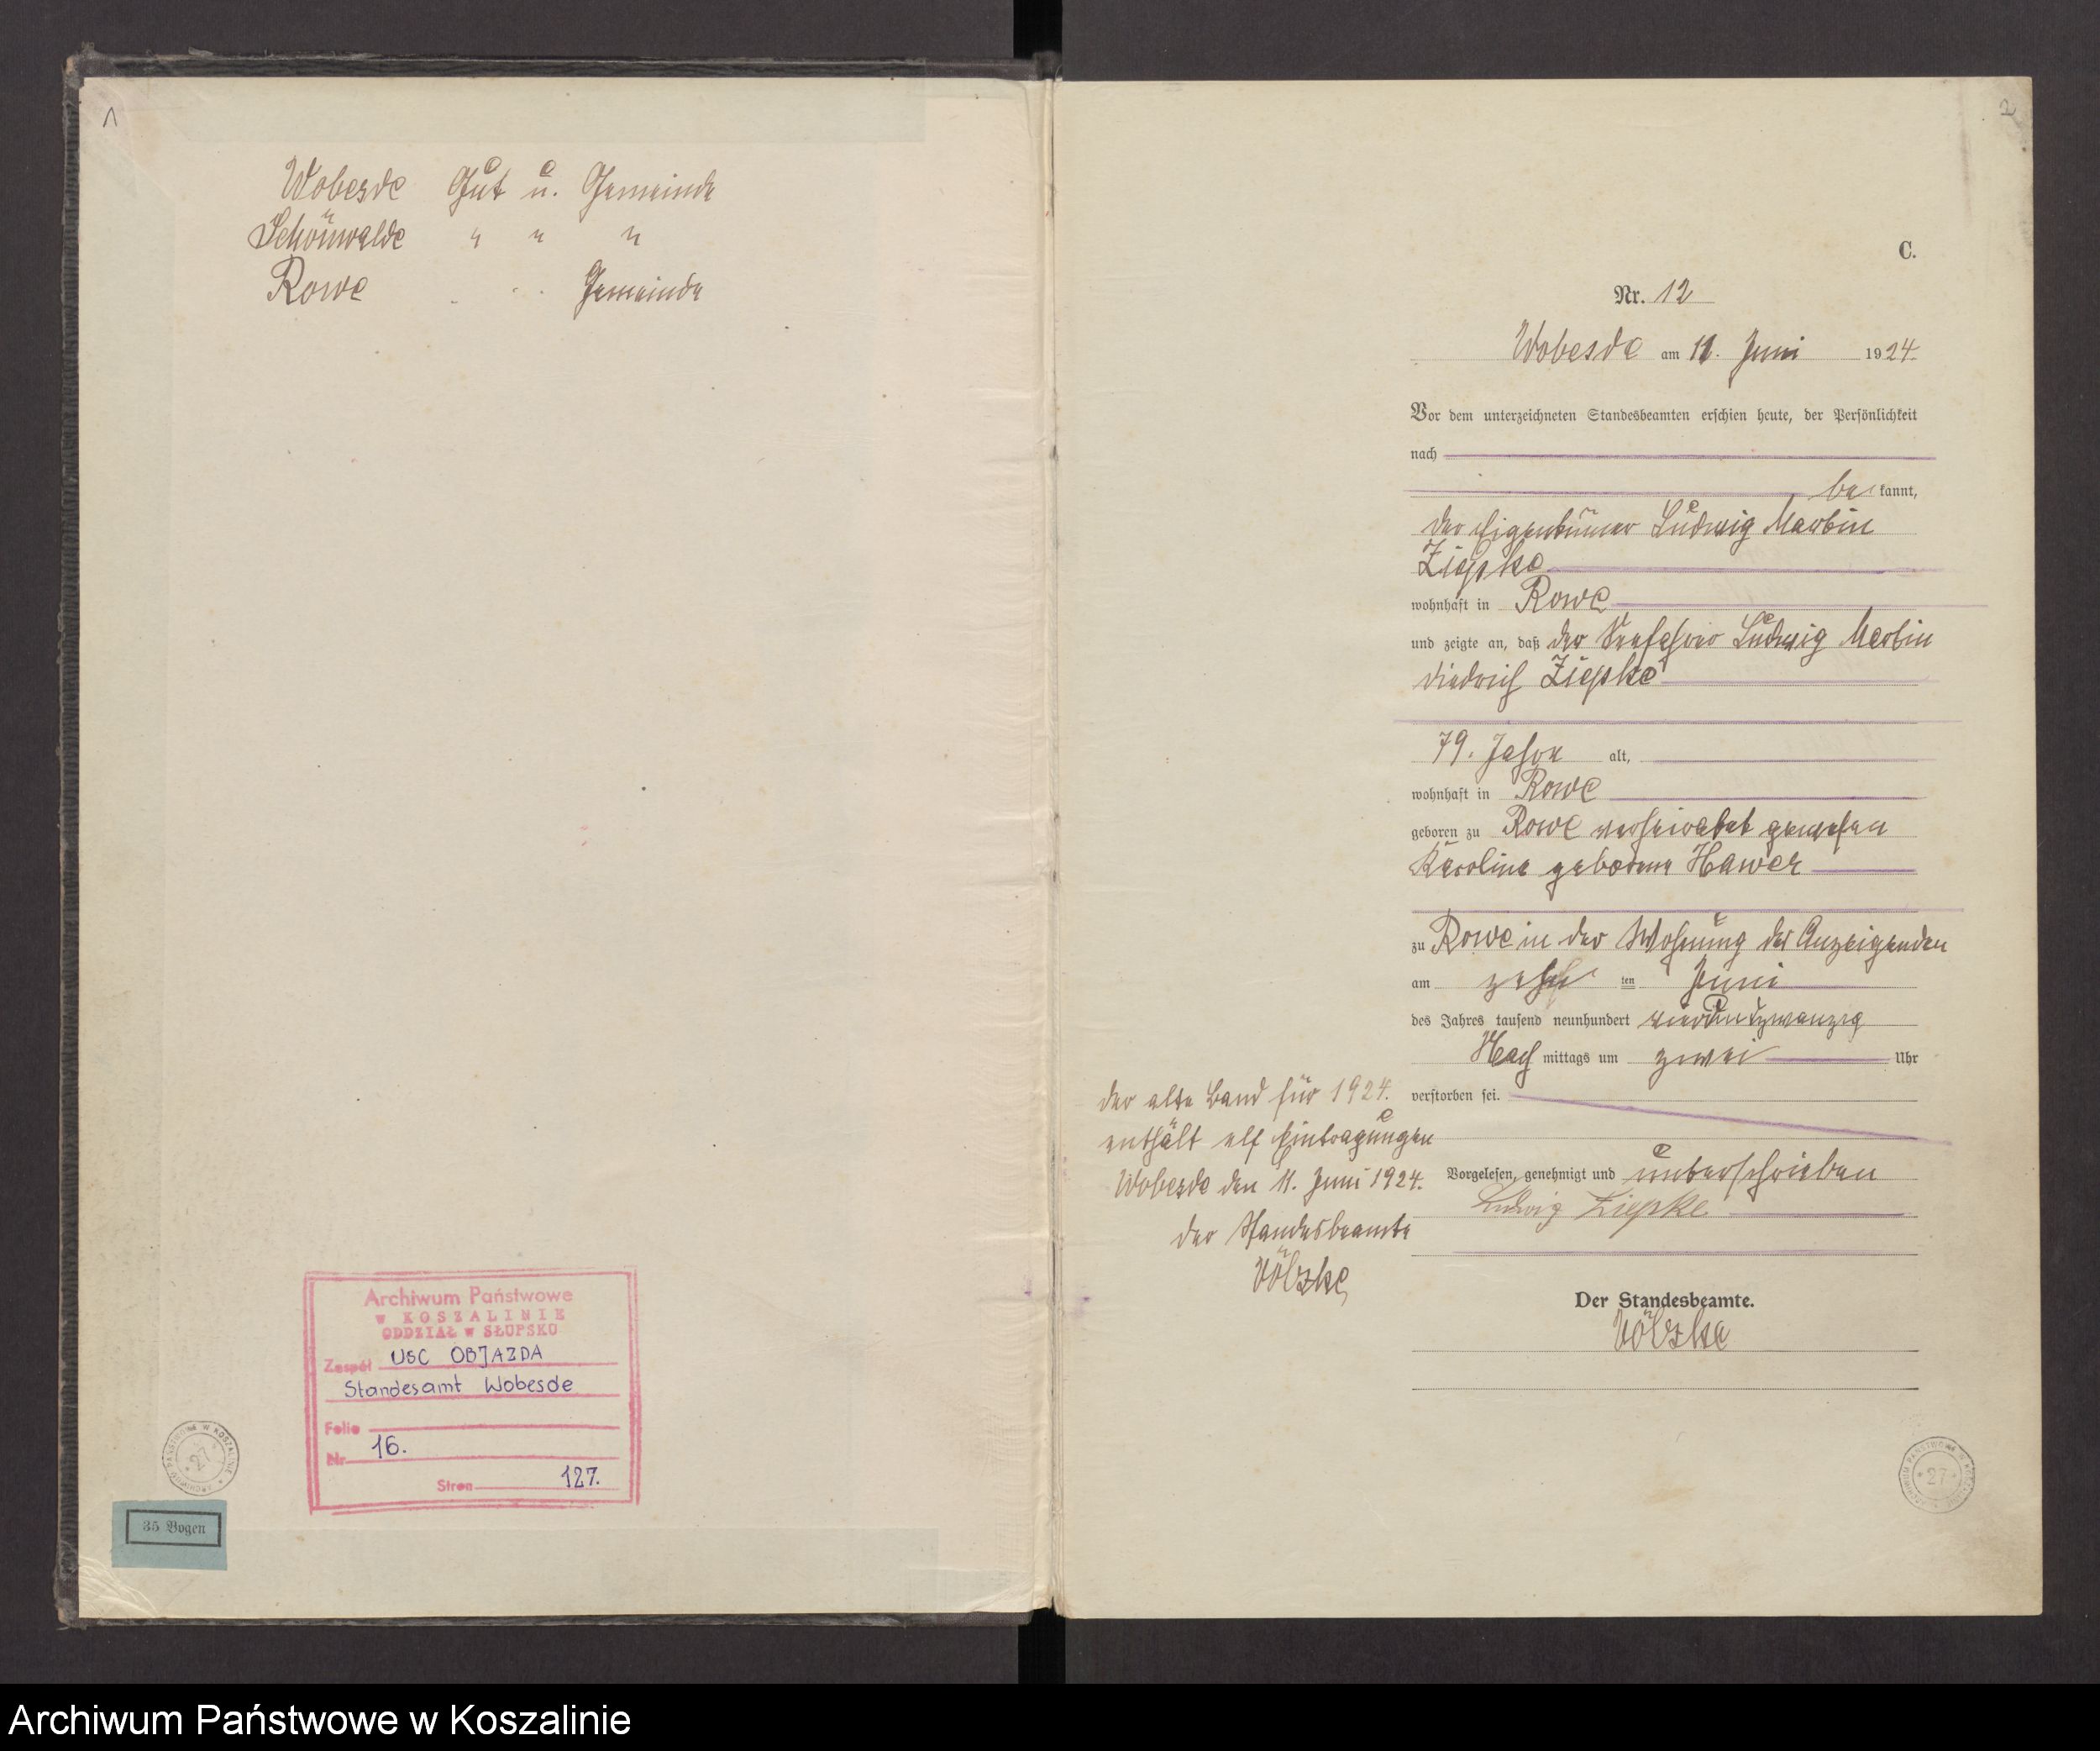 1
Wobesde Gut u. Gemeinde
Schönwalde " " "
Rowe Gemeinde
Archiwum Państwowe
W KOSZALINIE
ODDZIAŁ W SŁUPSKU
Zespół USC OBJAZDA
Standesamt Wobesde
Folio
Nr 16.
Stron 127.
ARCHIWUM PAŃSTWOWE W KOSZALINIE
27
35 Bogen
2
C.
Nr. 12
Wobesde am 11. Juni 1924.
Vor dem unterzeichneten Standesbeamten erschien heute, der Persönlichkeit
nach
be kannt,
der Eigentümer Ludwig Martin
Ziepke
wohnhaft in Rowe
und zeigte an, daß der Ludwig Martin
Diedrich Ziepke
79. Jahre alt,
wohnhaft in Rowe
geboren zu Rowe verheiratet gewesen
Karoline geborene Hawer
zu Rowe in der Wohnung des Anzeigenden
am zehn ten Juni
des Jahres tausend neunhundert vierundzwanzig
Nach mittags um zwei Uhr
verstorben sei.
Vorgelesen, genehmigt und unterschrieben
Ludwig Ziepke
Der Standesbeamte.
Völzke
der alte Band für 1924.
enthält elf Eintragungen
Wobesde den 11. Juni 1924.
der Standesbeamte
Völzke
ARCHIWUM PAŃSTWOWE W KOSZALINIE
27
Archiwum Państwowe w Koszalinie